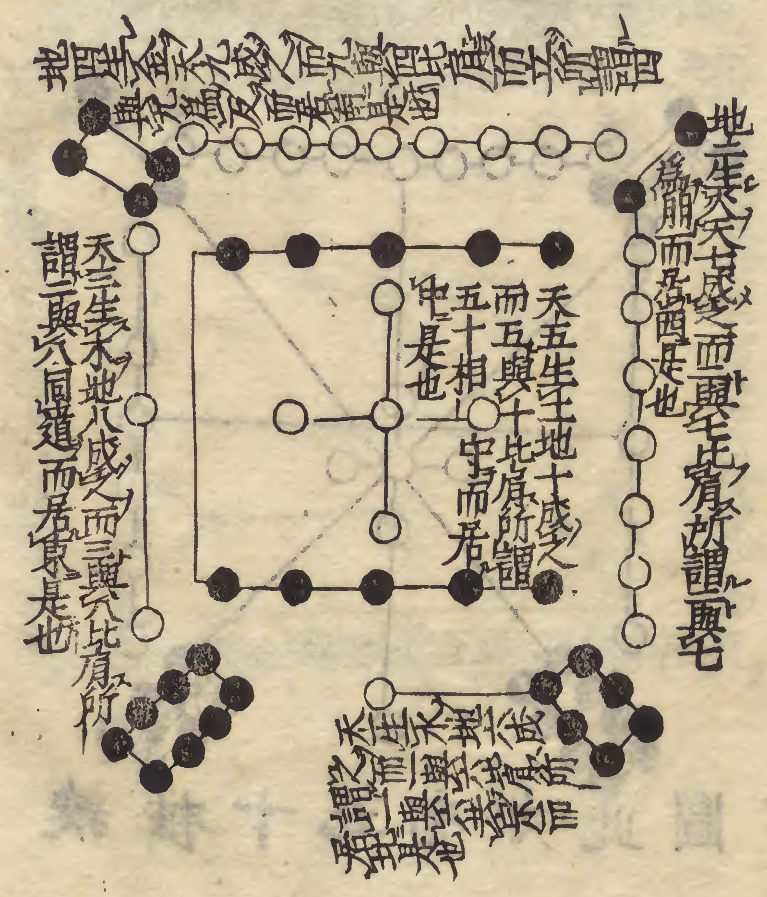 地四生金天九成之而九與四比肩而立所謂四
與九爲友而居南是也
地二生火天七成之而二與七比肩所謂二與七
爲朋而居西是也
天五生土地十成之
而五與十比肩所謂
五十相守而居
中是也
天三生木地八成之而三與八比肩所
謂三與八同道而居東是也
天一生水地六成
之而一與六比肩所
謂一與六共宗而
居北是也